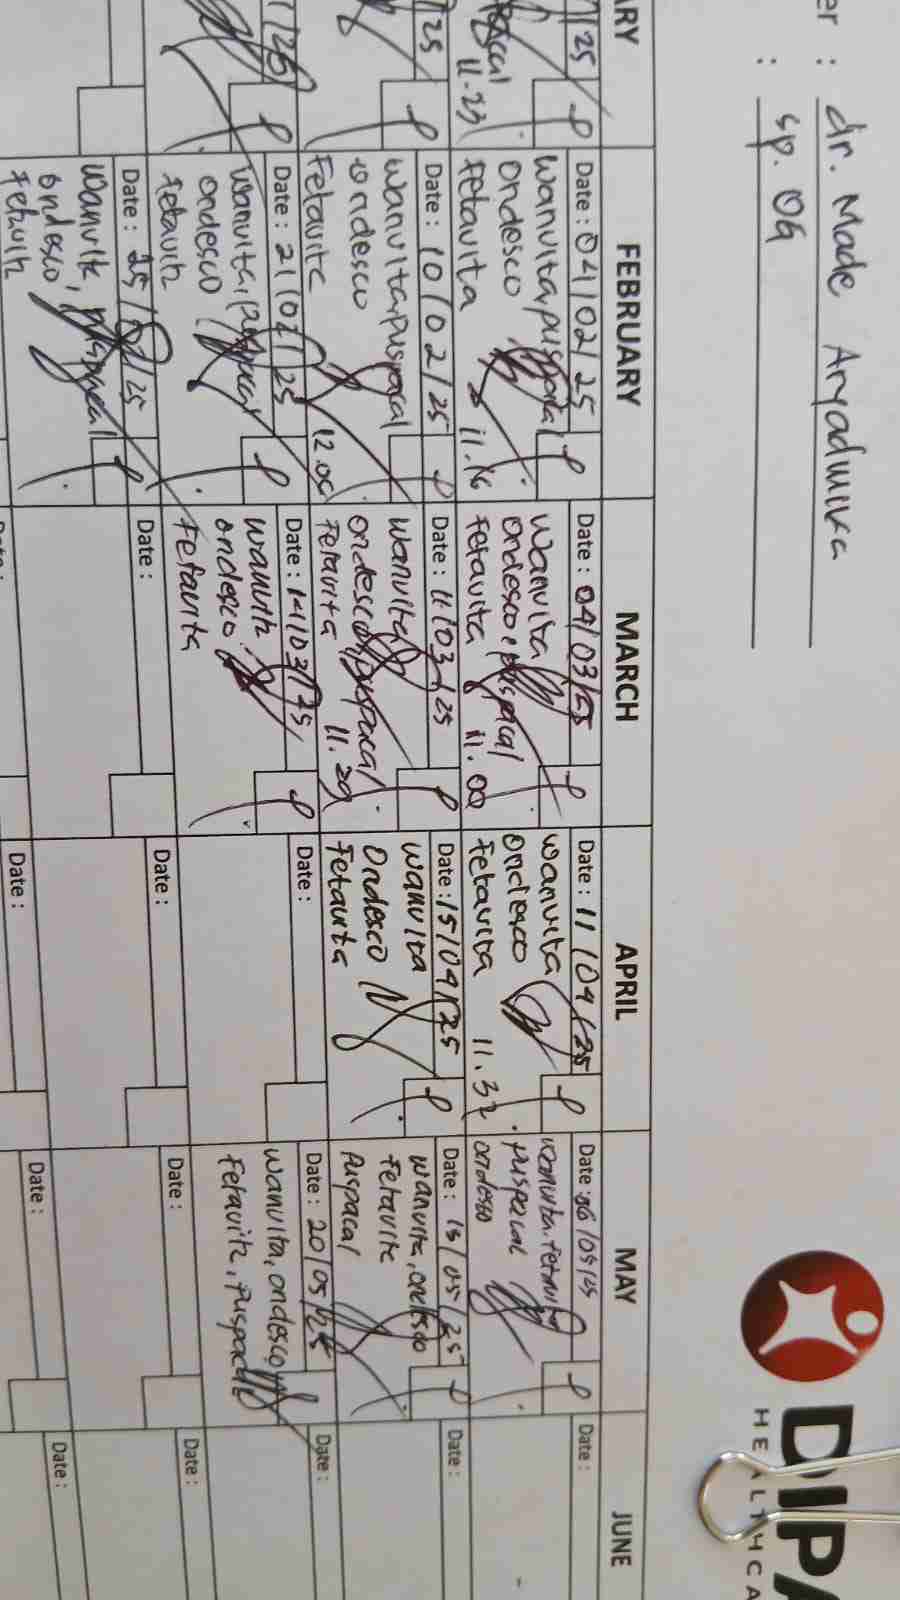 er : dr. Made Aryadwika
: sp. OG
DIPA
HEALTHCA
ARY
FEBRUARY
MARCH
APRIL
MAY
JUNE
/25
11.23
Date : 04/02/25
wanvita, puspacal
ondesco
Fetavita
11.16
Date : 04/03/25
wanvita
ondesco, puspacal
Fetavita 11.00
Date : 11/04/25
wanvita
ondesco
Fetavita 11.32
Date : 06/05/25
wanvita, Fetavita
puspacal
ondesco
Date :
25
Date : 10/02/25
wanvita, puspacal
ondesco
Fetavita
12.06
Date : 11/03/25
wanvita
ondesco, puspacal
Fetavita 11.29
Date : 15/04/25
wanvita
Ondesco
Fetavita
Date : 13/05/25
wanvita, ondesco
Fetavita
Puspacal
Date :
/25
Date : 21/02/25
wanvita, puspacal
ondesco
Fetavita
Date : 14/03/25
wanvita
ondesco
Fetavita
Date :
Date : 20/05/25
wanvita, ondesco
Fetavita, puspacal
Date :
Date : 25/02/25
wanvita, puspacal
ondesco
Fetavita
Date :
Date :
Date :
Date :
Date :
Date :
Date :
Date :